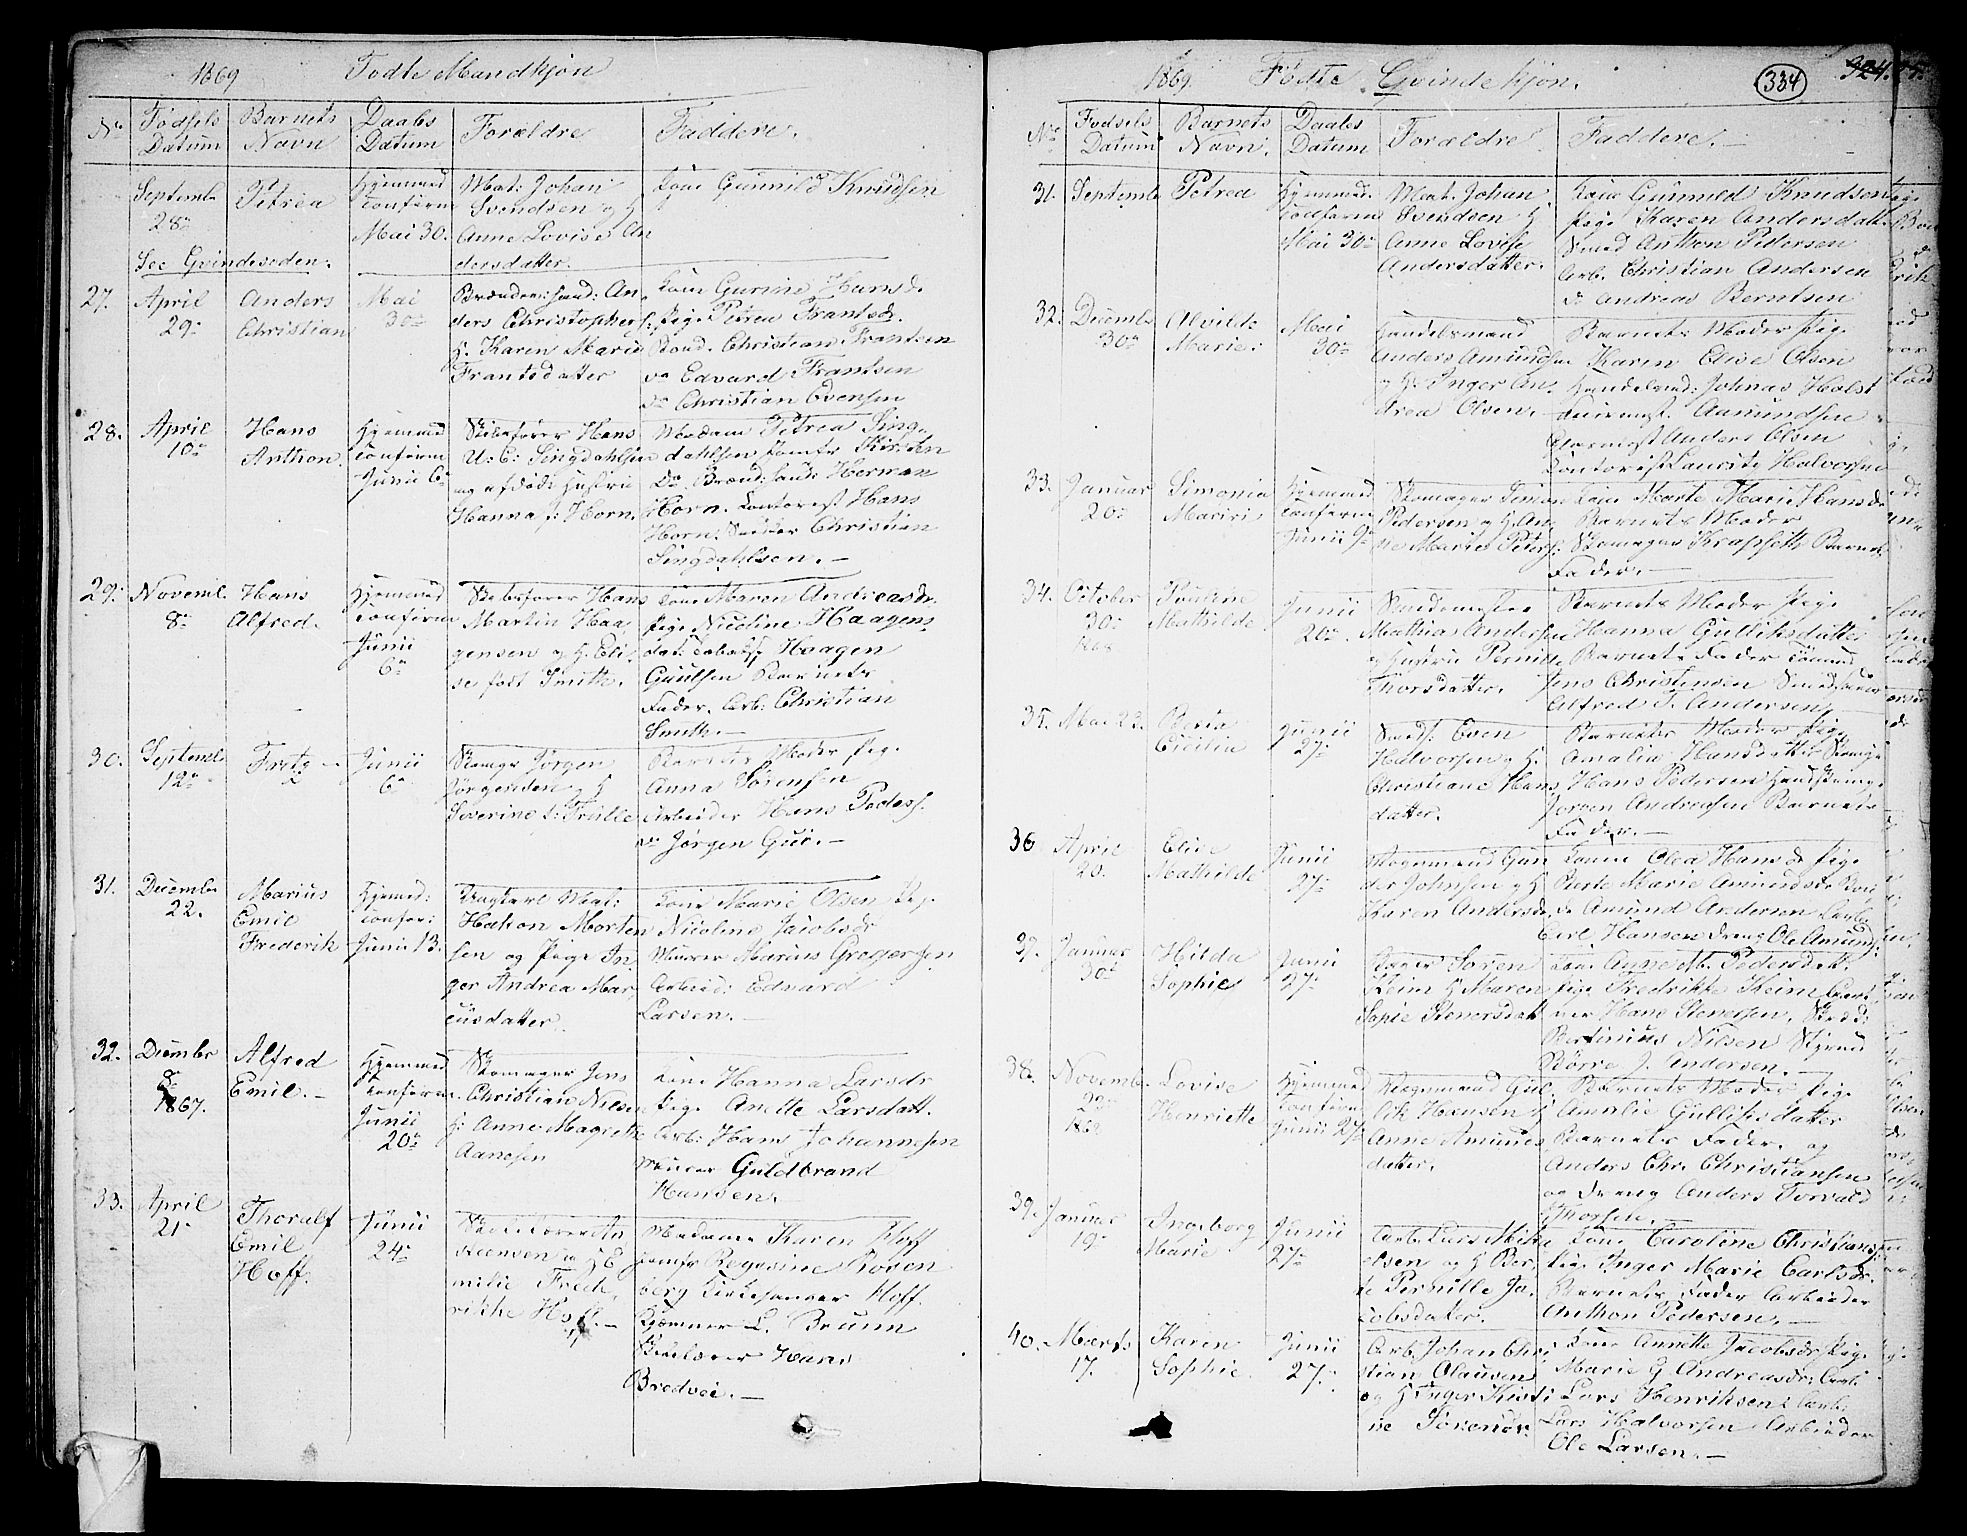 1869 Fødte Mandkjøn
No Fødsels Datum Barnets Navn Daabs Datum Forældre Faddere.
Septembr 28de Petrea Hjemmed Confirm Mai 30. Mat: Johan Svendsen og H Anne Lovise Andersdatter. Kone Gunnild Knudsen
See Qvindesiden.
27. April 29. Anders Christian Mai 30te
Anders Christophers: H. Karen Marie Frantsdatter
Kone Gurine Hansd.
Pige Petrea Frantsd.
Christian Frantsen
do Edvard Frantsen
do Christian Evensen
28. April 10de Hans Anthon. Hjemmed Confirm Junii 6te
Skibsfører Hans
U. C. Singdahlsen
og afdøde Hustru
Hanna f: Horn.
Madam Petrea Sing-
dahlsen Jomfr Kirsten
do. Brænd: Herman
Horn. Contorist Hans
Horn. Christian
Singdahlsen. –
29. Novembr 8de Hans Alfred. Hjemmed Confirm Junii 6te
Skibsfører Hans
Martin Haa-
gensen og H. Eli-
se født Smith.
Kone Maren Andreasdr.
Pige Nicoline Haagens
dat: Haagen
Guulsen Barnets
Fader. Arb: Christian
Smith. –
30. Septembr 12te Fritz – Junii 6te
Skomgr Jørgen
Jørgensen og H
Severine f: Frille
Barnets Moder Pige
Anna Sørensen
Arbeider Hans Peders:
do Jørgen –
31. Decembr 22. Marius Emil Frederik Hjemmed: Confir: Junii 13.
Ungkarl Mat:
Hakon Morten
sen og Pige In-
ger Andrea Mar-
cusdatter.
Kone Marie Olsen Pig.
Nicoline Jacobsdr
Murer Marius Gregersen
Arbeid: Edvard
Larsen. –
32. Decembr 8de 1867. Alfred Emil. – Hjemmed Confirm. Junii 20de
Skomager Jens
Christian Nilsen
H: Anne Magrethe
Aanesen
Kone Hanna Larsdr
Pige Anette Larsdatt.
Arb: Hans Johannesen
Murer Guldbrand
Hansen. –
33. April 21. Thoralf Emil Hoff. Junii 24de
H E
milie Fred-
rikke Hoff. –
Madame Karen Hoff
Jomfr Regesine Rosen
berg Kirkesanger Hoff.
Kjæmner L. Bruun
Hans
Bredvei. –
1869. Fødte Qvindekjøn. 334 324.
No. Fødsels Datum Barnets Navn. Daabs Datum Forældre Faddere. –
31. Septembr Petrea Hjemmed. Confirm Mai 30te
Mat. Johan
Svendsen H.
Anne Lovise
Andersdatter.
Kone Gunnild Knudsen
Pige Karen Andersdatt
Smed Anthon Pedersen
Arb. Christian Andersen
do Andreas Berntsen
32. Decembr 30te Alvilde Marie: Mai 30te
Handelsmand
Anders Amundsen
og H. Inger An-
drea Olsen. –
Barnets Moder Pige
Karen Elise Olsen
Handelsmd: Johnas Holst
Aamundsen
Anders Olsen
Contorist Lauritz Halvorsen
33. Januar 20de Simonia Hjemmed Confirm Junii 9de
Skomager Simon
Pedersen og H. An-
ne Marie Peters:
Kone Marte Marie Hansdr
Barnets Moder
Skomager Barnets
Fader. –
34. October 30te 1868 Mathilde Junii 20de
Smedemester
Mathias Andersen
og Hustru Pernille
Thorsdatter.
Barnets Moder Pige
Hanna Gulliksdatter
Barnets Fader Tømmd
Jens Christensen
Alfred T. Andersen
35. Mai 23. Cicilia Junii 27de
Even
Halvorsen og H.
Christiane Hans
datter.
Barnets Moder Pige
Amalia Hansdatter
Hans Pedersen
Jørgen Andreasen Barnets
Fader. –
36 April 20. Elise Mathilde Junii 27de
Vognmand Gun
der Johnsen og H
Karen Andersdr.
Kone Olea Hansdr Pige
Marie Amundsdr
Amund Andersen
Carl Hansen Dreng Ole Amunds:
37. Januar 30te Hilda Sophie Junii 27de
Søren
Keim H Maren
Sofie Stenersdatt
Kone Anne M. Pedersdatt.
Pige Fredrikke Keim
Hans Stenersen,
Bertinius Nilsen Styrmd
Børre J. Andersen. –
38. Novembr 23de Lovise Henriette Hjemmed Confirm Junii 27de
Vognmand Gul
Hansen H
Anne Amunds
datter.
Barnets Moder Pige
Amalie Gulliksdatter
Barnets Fader. og
Anders Chr. Christiansen
og Dreng Anders Torvald
–
39. Januar 19de Ingeborg Marie Junii 27de
Arb Lars Mikk
elsen og H Ber-
te Pernille Ja-
cobsdatter.
Kone Caroline Christians
Pige Inger Marie Carlsdr.
Barnets Fader Arbeider
Anthon Pedersen. –
40. Marts 17. Karen Sophie. Junii 27de
Arb. Johan Chri
stian Olausen
og H Inger Kristi
ne Sørensdr
Kone Annette Jacobsdr Pige
Marie G Andreasdr: Arb:
Lars Henriksen Arb:
Lars Halvorsen Arbeider
Ole Larsen. –